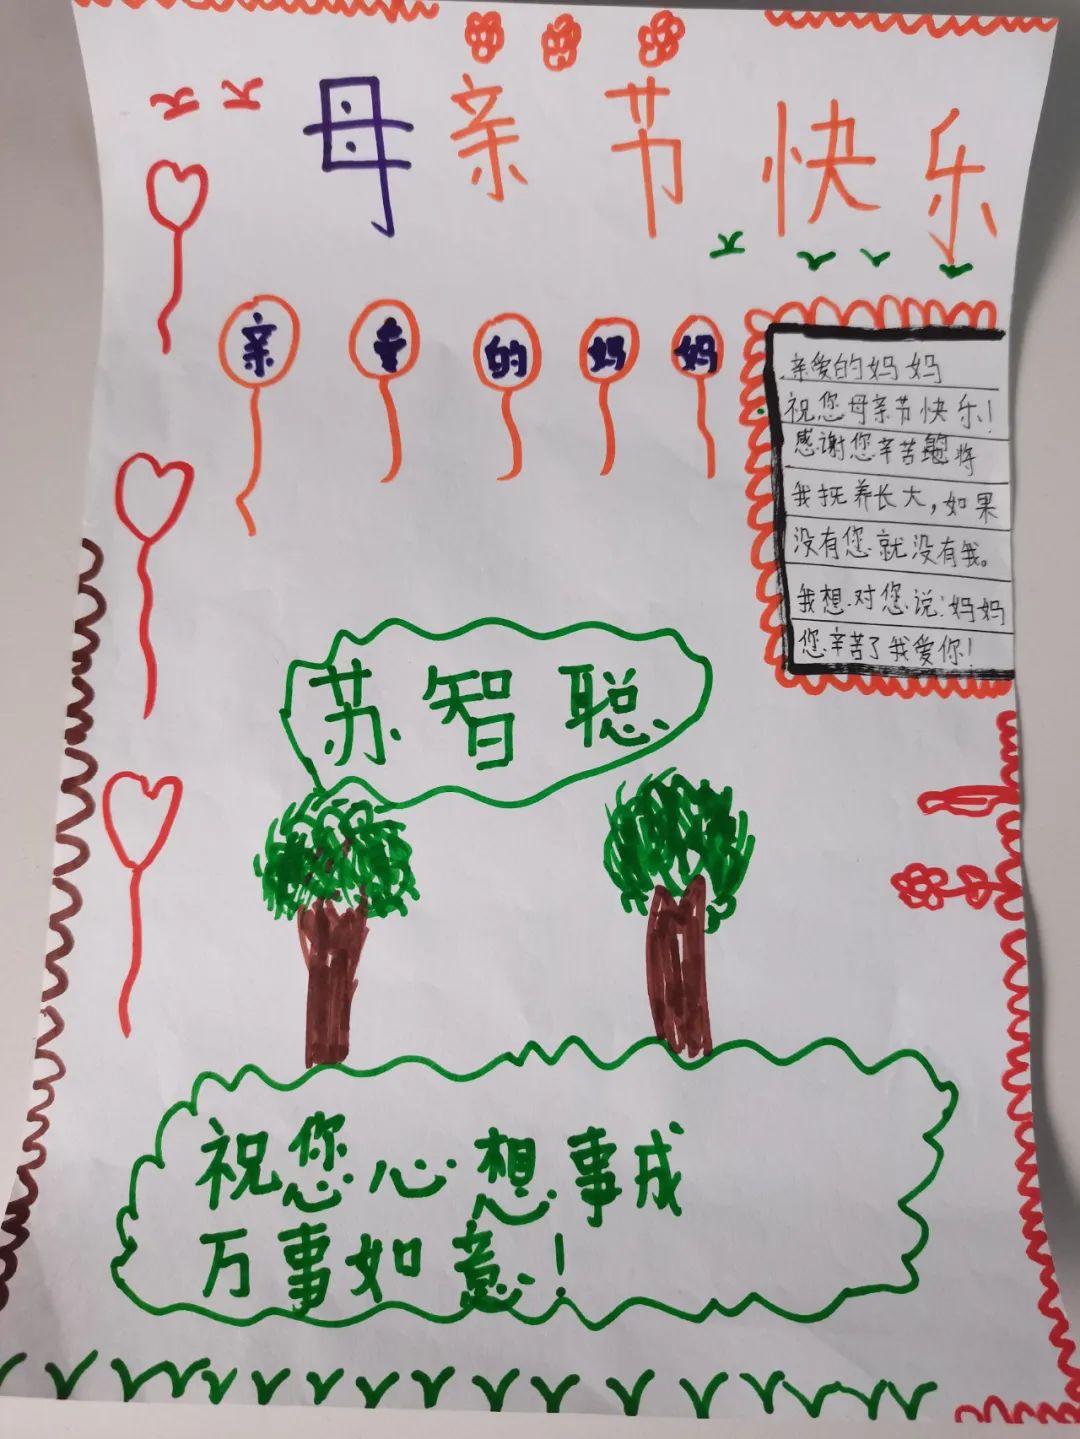 母亲节快乐
亲爱的妈妈
亲爱的妈妈
祝您母亲节快乐!
感谢您辛苦将
我抚养长大,如果
没有您就没有我。
我想对您说:妈妈
您辛苦了我爱你!
苏智聪
祝您心想事成
万事如意!